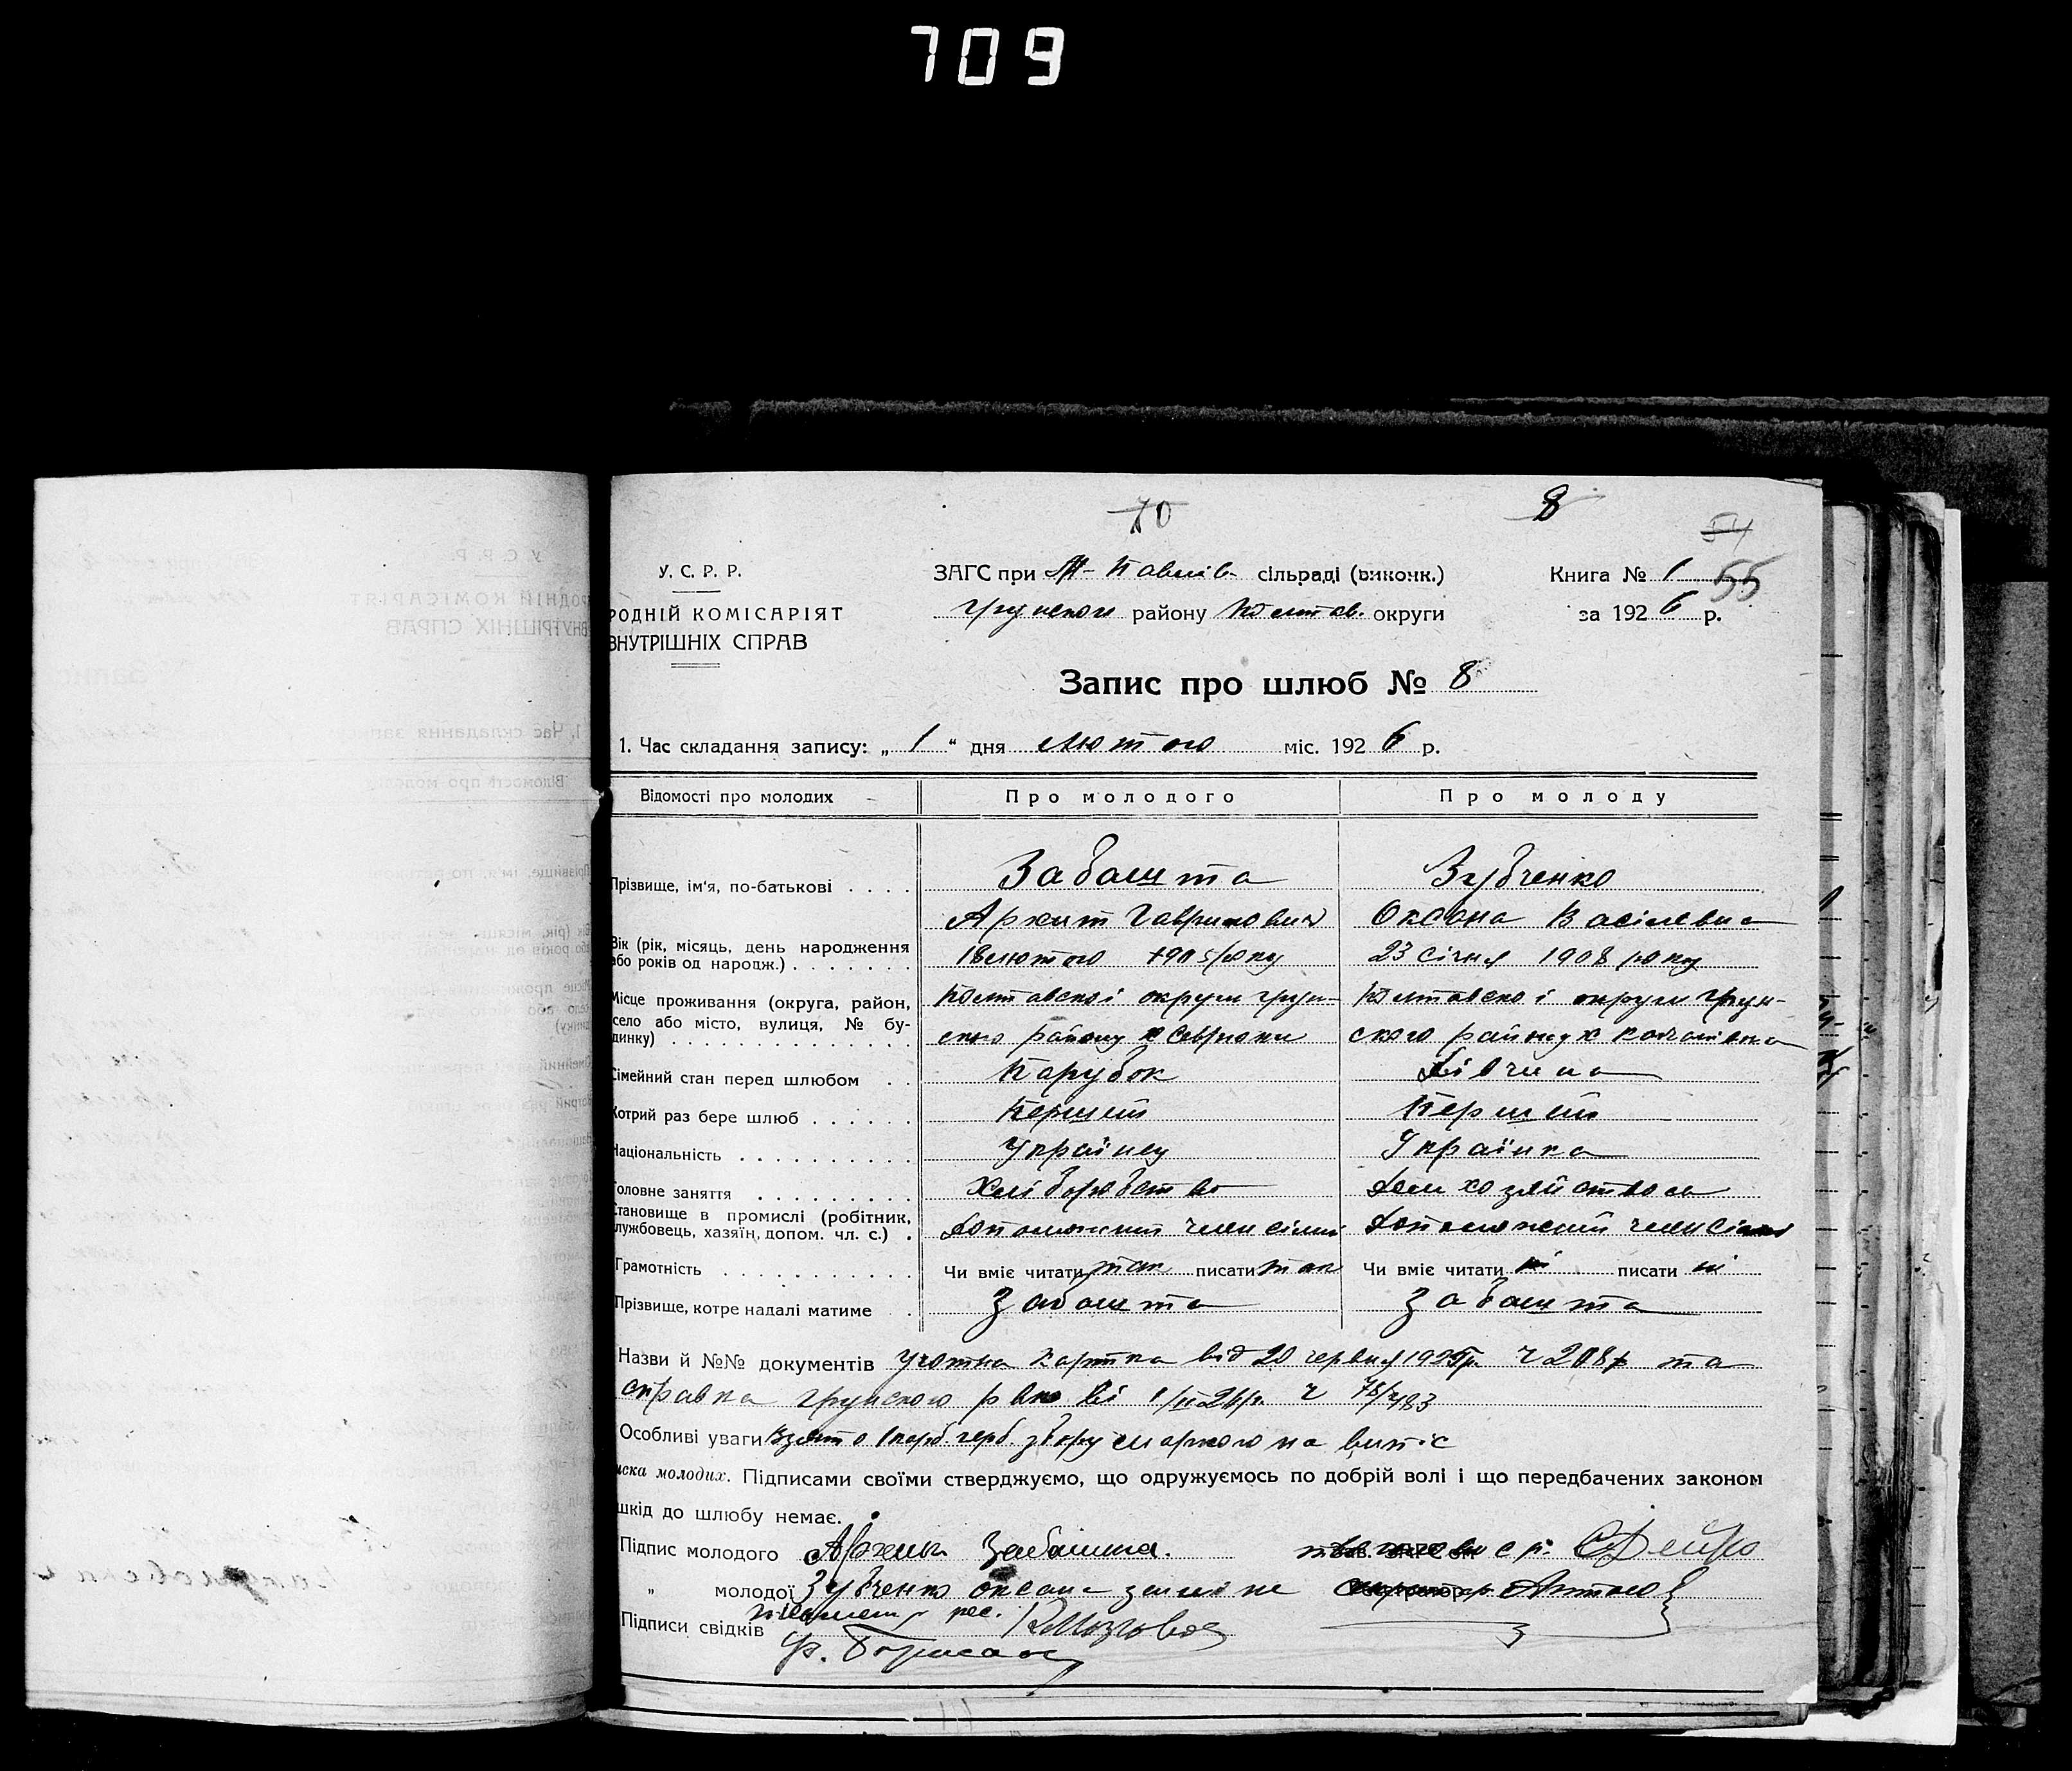 709
70 8 54
У. С. Р. Р. ЗАГС при М-Павлів. сільраді (виконк.) Книга № 1 55
РОДНІЙ КОМІСАРІЯТ Грунського району Полтав. округи за 1926 р.
ВНУТРІШНІХ СПРАВ
Запис про шлюб № 8
1. Час складання запису: „ 1 “ дня лютого міс. 1926 р.
Відомості про молодих Про молодого Про молоду
Прізвище, ім'я, по-батькові . . . . Забашта Зубченко
Архип Гаврилович Оксана Василівна
Вік (рік, місяць, день народження 18 лютого 1905 року 23 січня 1908 року
або років од народж.) . . . . . . .
Місце проживання (округа, район, Полтавської округи Грун- Полтавської округи Грун-
село або місто, вулиця, № бу- ського району х ського району х
динку) . . . . . . . . . . . . . .
Сімейний стан перед шлюбом . . Парубок Дівчина
Котрий раз бере шлюб . . . . . . Перший Перший
Національність . . . . . . . . . . Українец Українка
Головне заняття . . . . . . . . . Хліборобство
Становище в промислі (робітник, Допоможний член сімї Допоможний член сімї
лужбовець, хазяїн, допом. чл. с.) .
Грамотність . . . . . . . . . . . Чи вміє читати так писати так Чи вміє читати ні писати ні
Прізвище, котре надалі матиме . Забашта Забашта
Назви й №№ документів Учотна картка від 20 червня 1925р. ч та
справка Грунского р ч
Особливі уваги Взято 1 карб. герб. збору маркою на випіс
иска молодих. Підписами своїми стверджуємо, що одружуємось по добрій волі і що передбачених законом
шкід до шлюбу немає.
Підпис молодого Архип Забашта.
„ молодої Зубченко Оксана
Підписи свідків